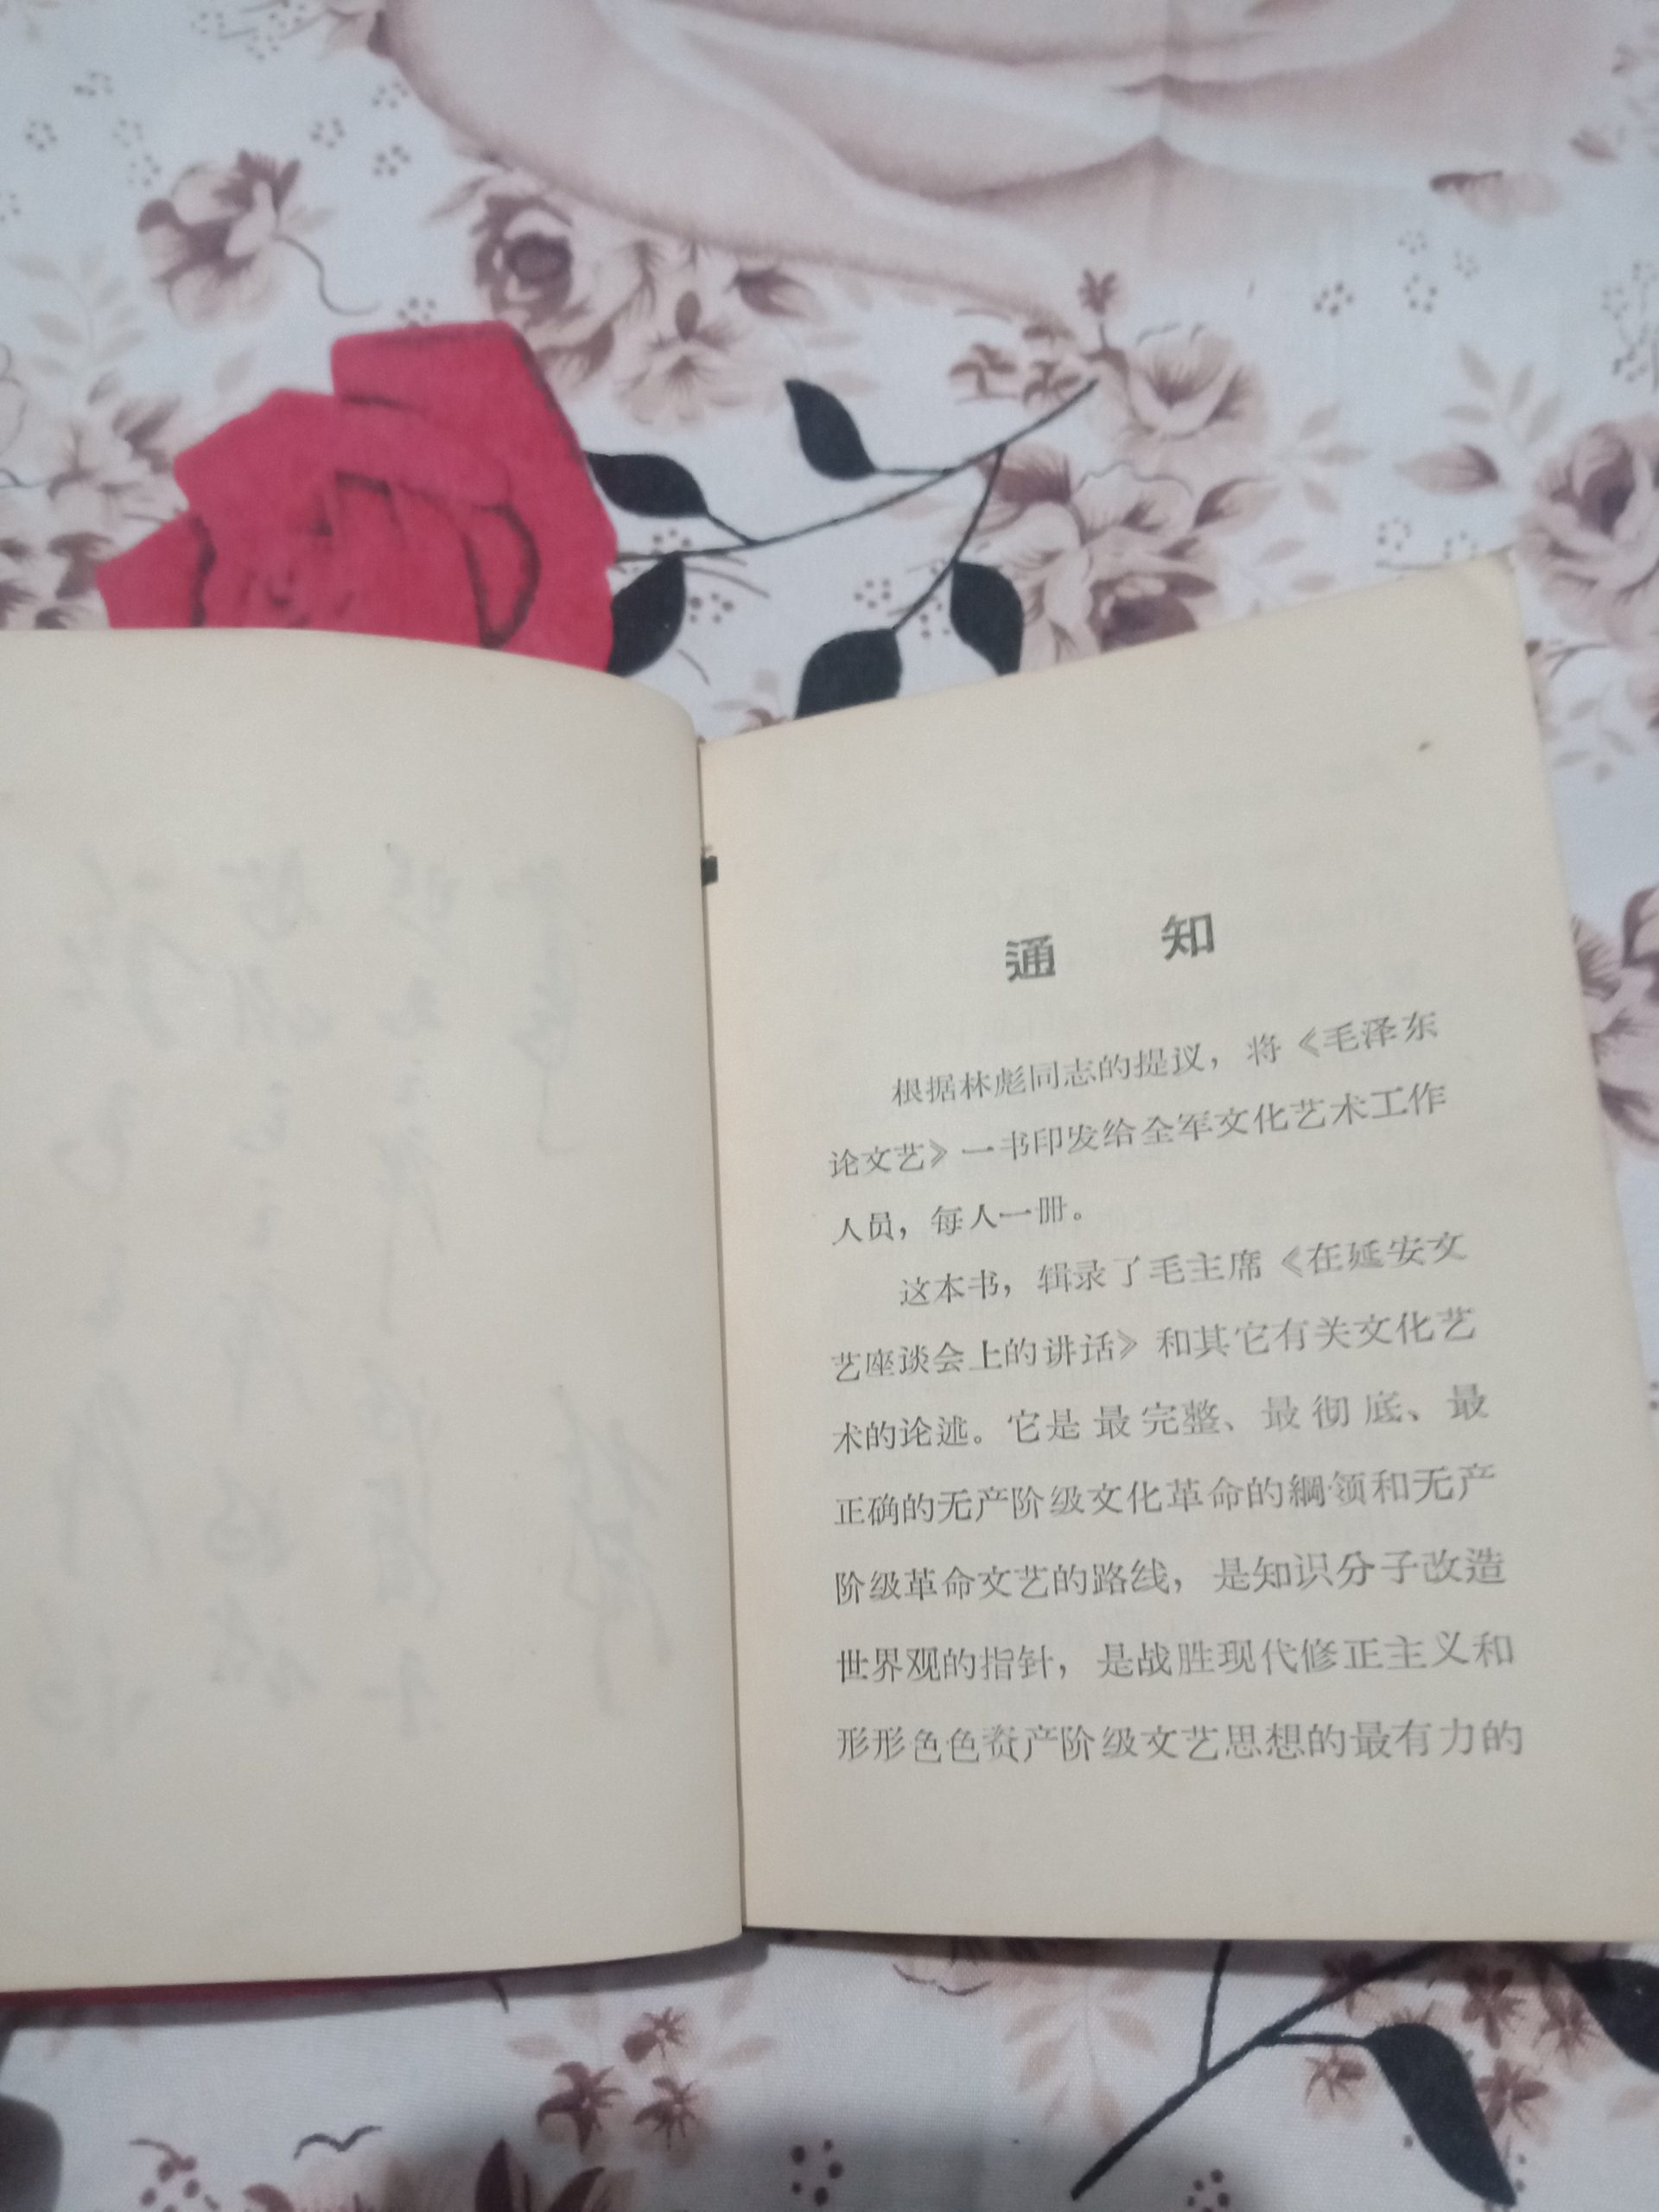 通 知
根据林彪同志的提议，将《毛泽东
论文艺》一书印发给全军文化艺术工作
人员，每人一册。
这本书，辑录了毛主席《在延安文
艺座谈会上的讲话》和其它有关文化艺
术的论述。它是最完整、最彻底、最
正确的无产阶级文化革命的綱领和无产
阶级革命文艺的路线，是知识分子改造
世界观的指针，是战胜现代修正主义和
形形色色资产阶级文艺思想的最有力的